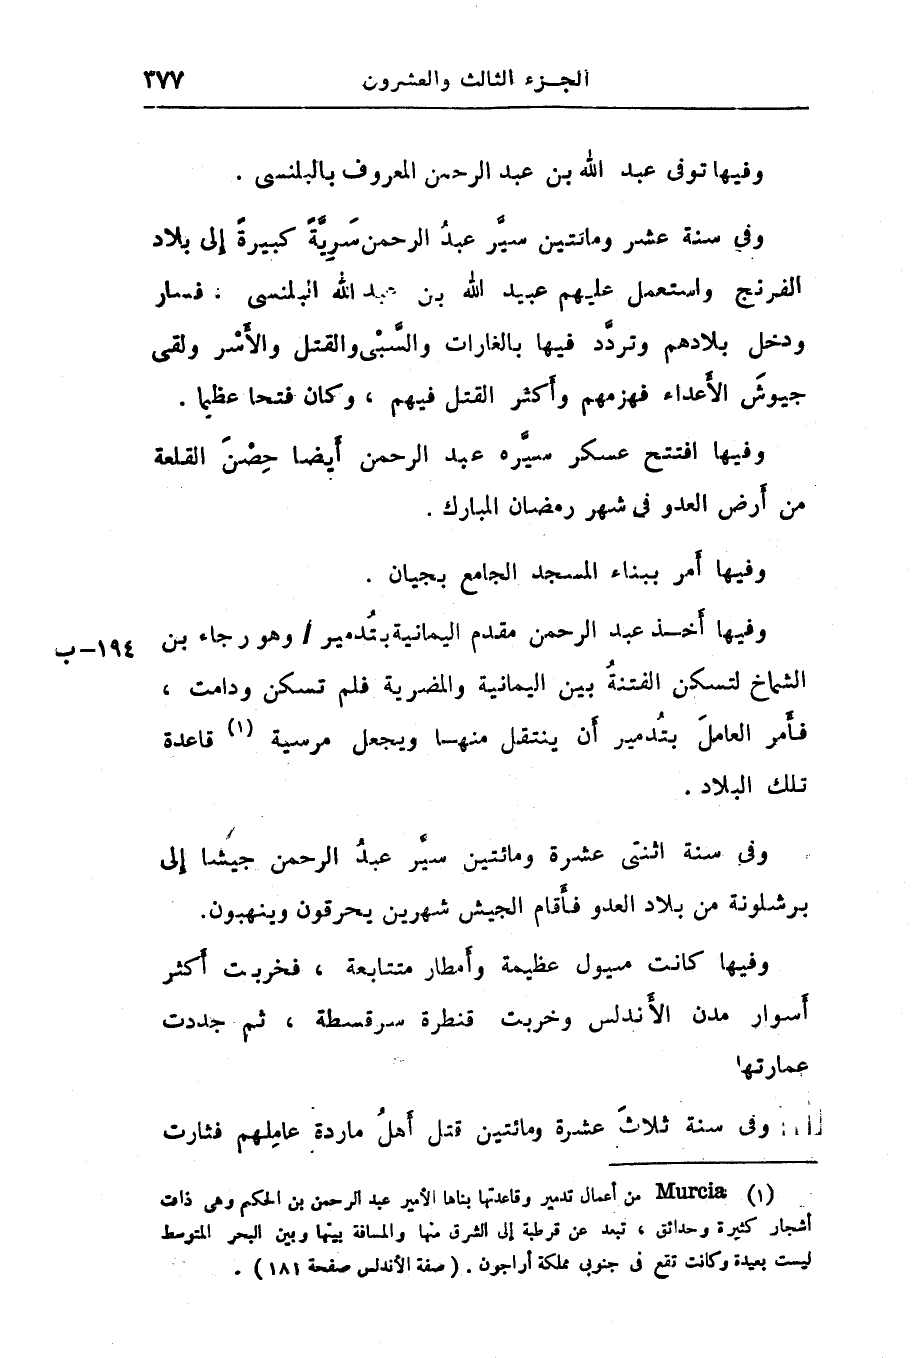 الجزء الثالث والعشرون ٣٧٧
وفيها توفى عبد الله بن عبد الرحمن المعروف بالبلنسى .
وفى سنة عشر ومائتين سيَّر عبدُ الرحمن سَرِيَّةً كبيرةً إلى بلاد
الفرنج واستعمل عليهم عبيد الله بن عبد الله البلنسى : فسار
ودخل بلادهم وتردَّد فيها بالغارات والسَّبْى والقتل والأَسْر ولقى
جيوشَ الأَعداء فهزمهم وأَكثر القتل فيهم ، وكان فتحا عظيما .
وفيها افتتح عسكر سيَّره عبد الرحمن أَيضا حِصْنَ القلعة
من أَرض العدو فى شهر رمضان المبارك .
وفيها أَمر ببناء المسجد الجامع بجيان .
وفيها أَخذ عبد الرحمن مقدم اليمانية بتُدمير / وهو رجاء بن ١٩٤-ب
الشماخ لتسكن الفتنةُ بين اليمانية والمضرية فلم تسكن ودامت ،
فأَمر العاملَ بتُدمير أَن ينتقل منها ويجعل مرسية (١) قاعدة
تلك البلاد .
وفى سنة اثنتى عشرة ومائتين سيَّر عبدُ الرحمن جيشا إلى
برشلونة من بلاد العدو فأَقام الجيش شهرين يحرقون وينهبون.
وفيها كانت سيول عظيمة وأَمطار متتابعة ، فخربت أَكثر
أَسوار مدن الأَندلس وخربت قنطرة سرقسطة ، ثم جددت
عمارتها
وفى سنة ثلاثَ عشرة ومائتين قتل أَهلُ ماردة عاملهم فثارت
(١) Murcia من أعمال تدمير وقاعدتها بناها الأمير عبد الرحمن بن الحكم وهى ذات
أشجار كثيرة وحدائق ، تبعد عن قرطبة إلى الشرق منها والمسافة بينها وبين البحر المتوسط
ليست بعيدة وكانت تقع فى جنوبى مملكة أراجون . ( صفة الأندلس صفحة ١٨١ ) .